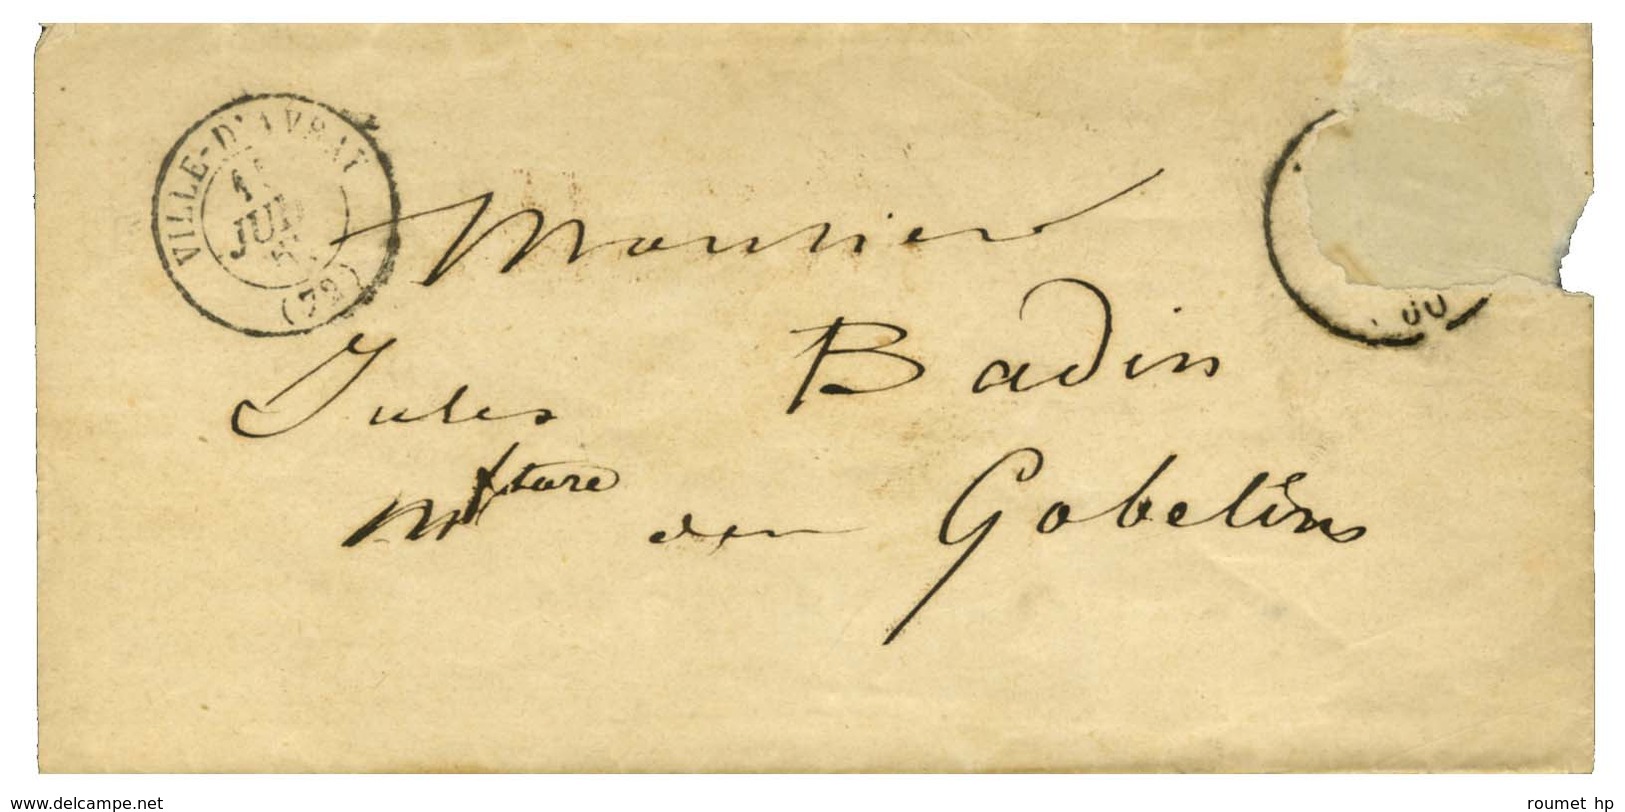 VILLE-D'AVRAY
(72)
Monsieur
Jules Badin
Mfture des Gobelins
www.delcampe.net
roumet hp